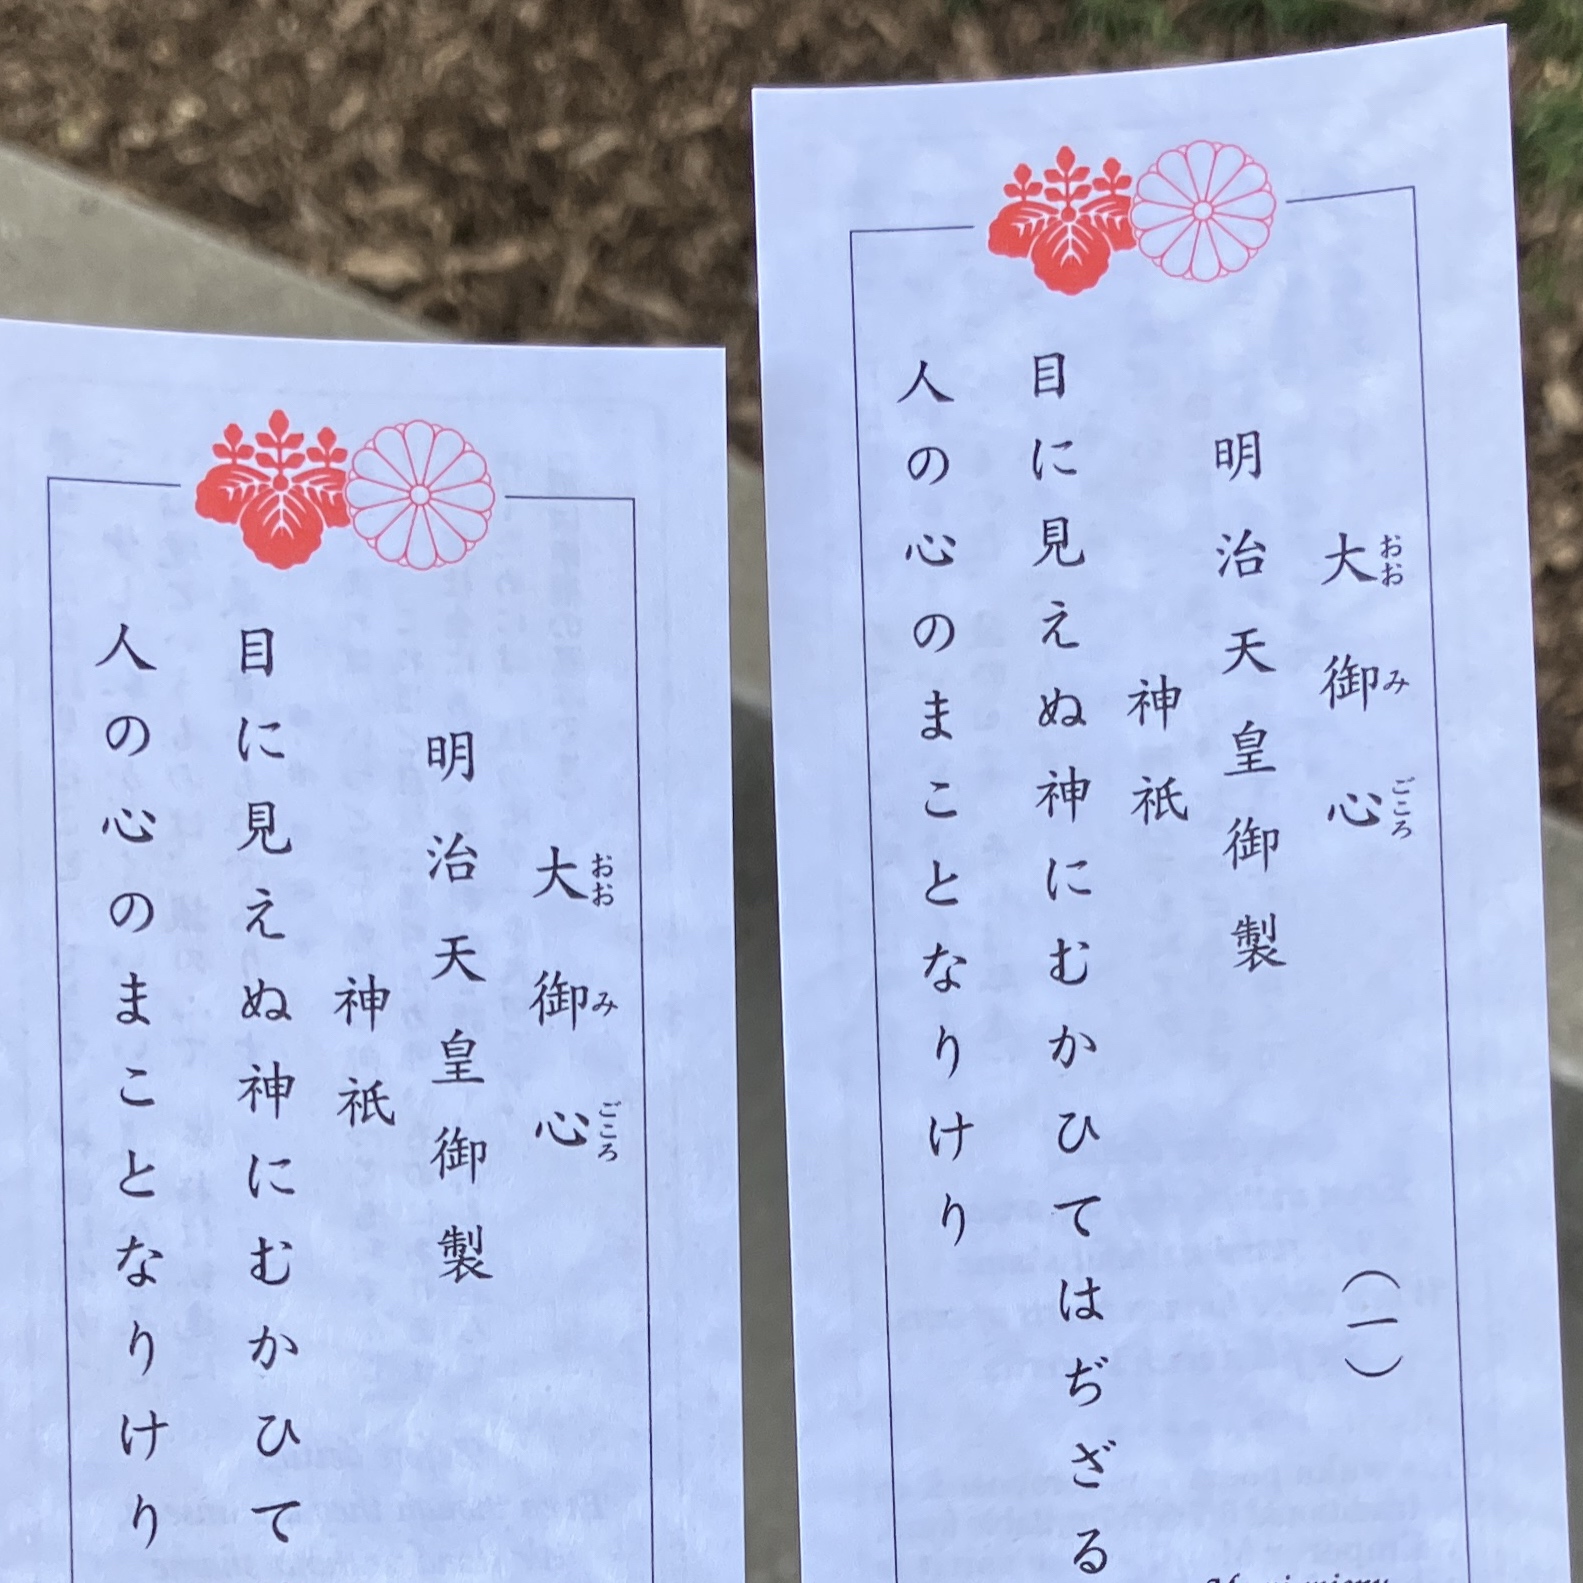 大御心 (一)
おお み ごころ
明治天皇御製
神祇
目に見えぬ神にむかひてはぢざる
人の心のまことなりけり
大御心
おお み ごころ
明治天皇御製
神祇
目に見えぬ神にむかひて
人の心のまことなりけり